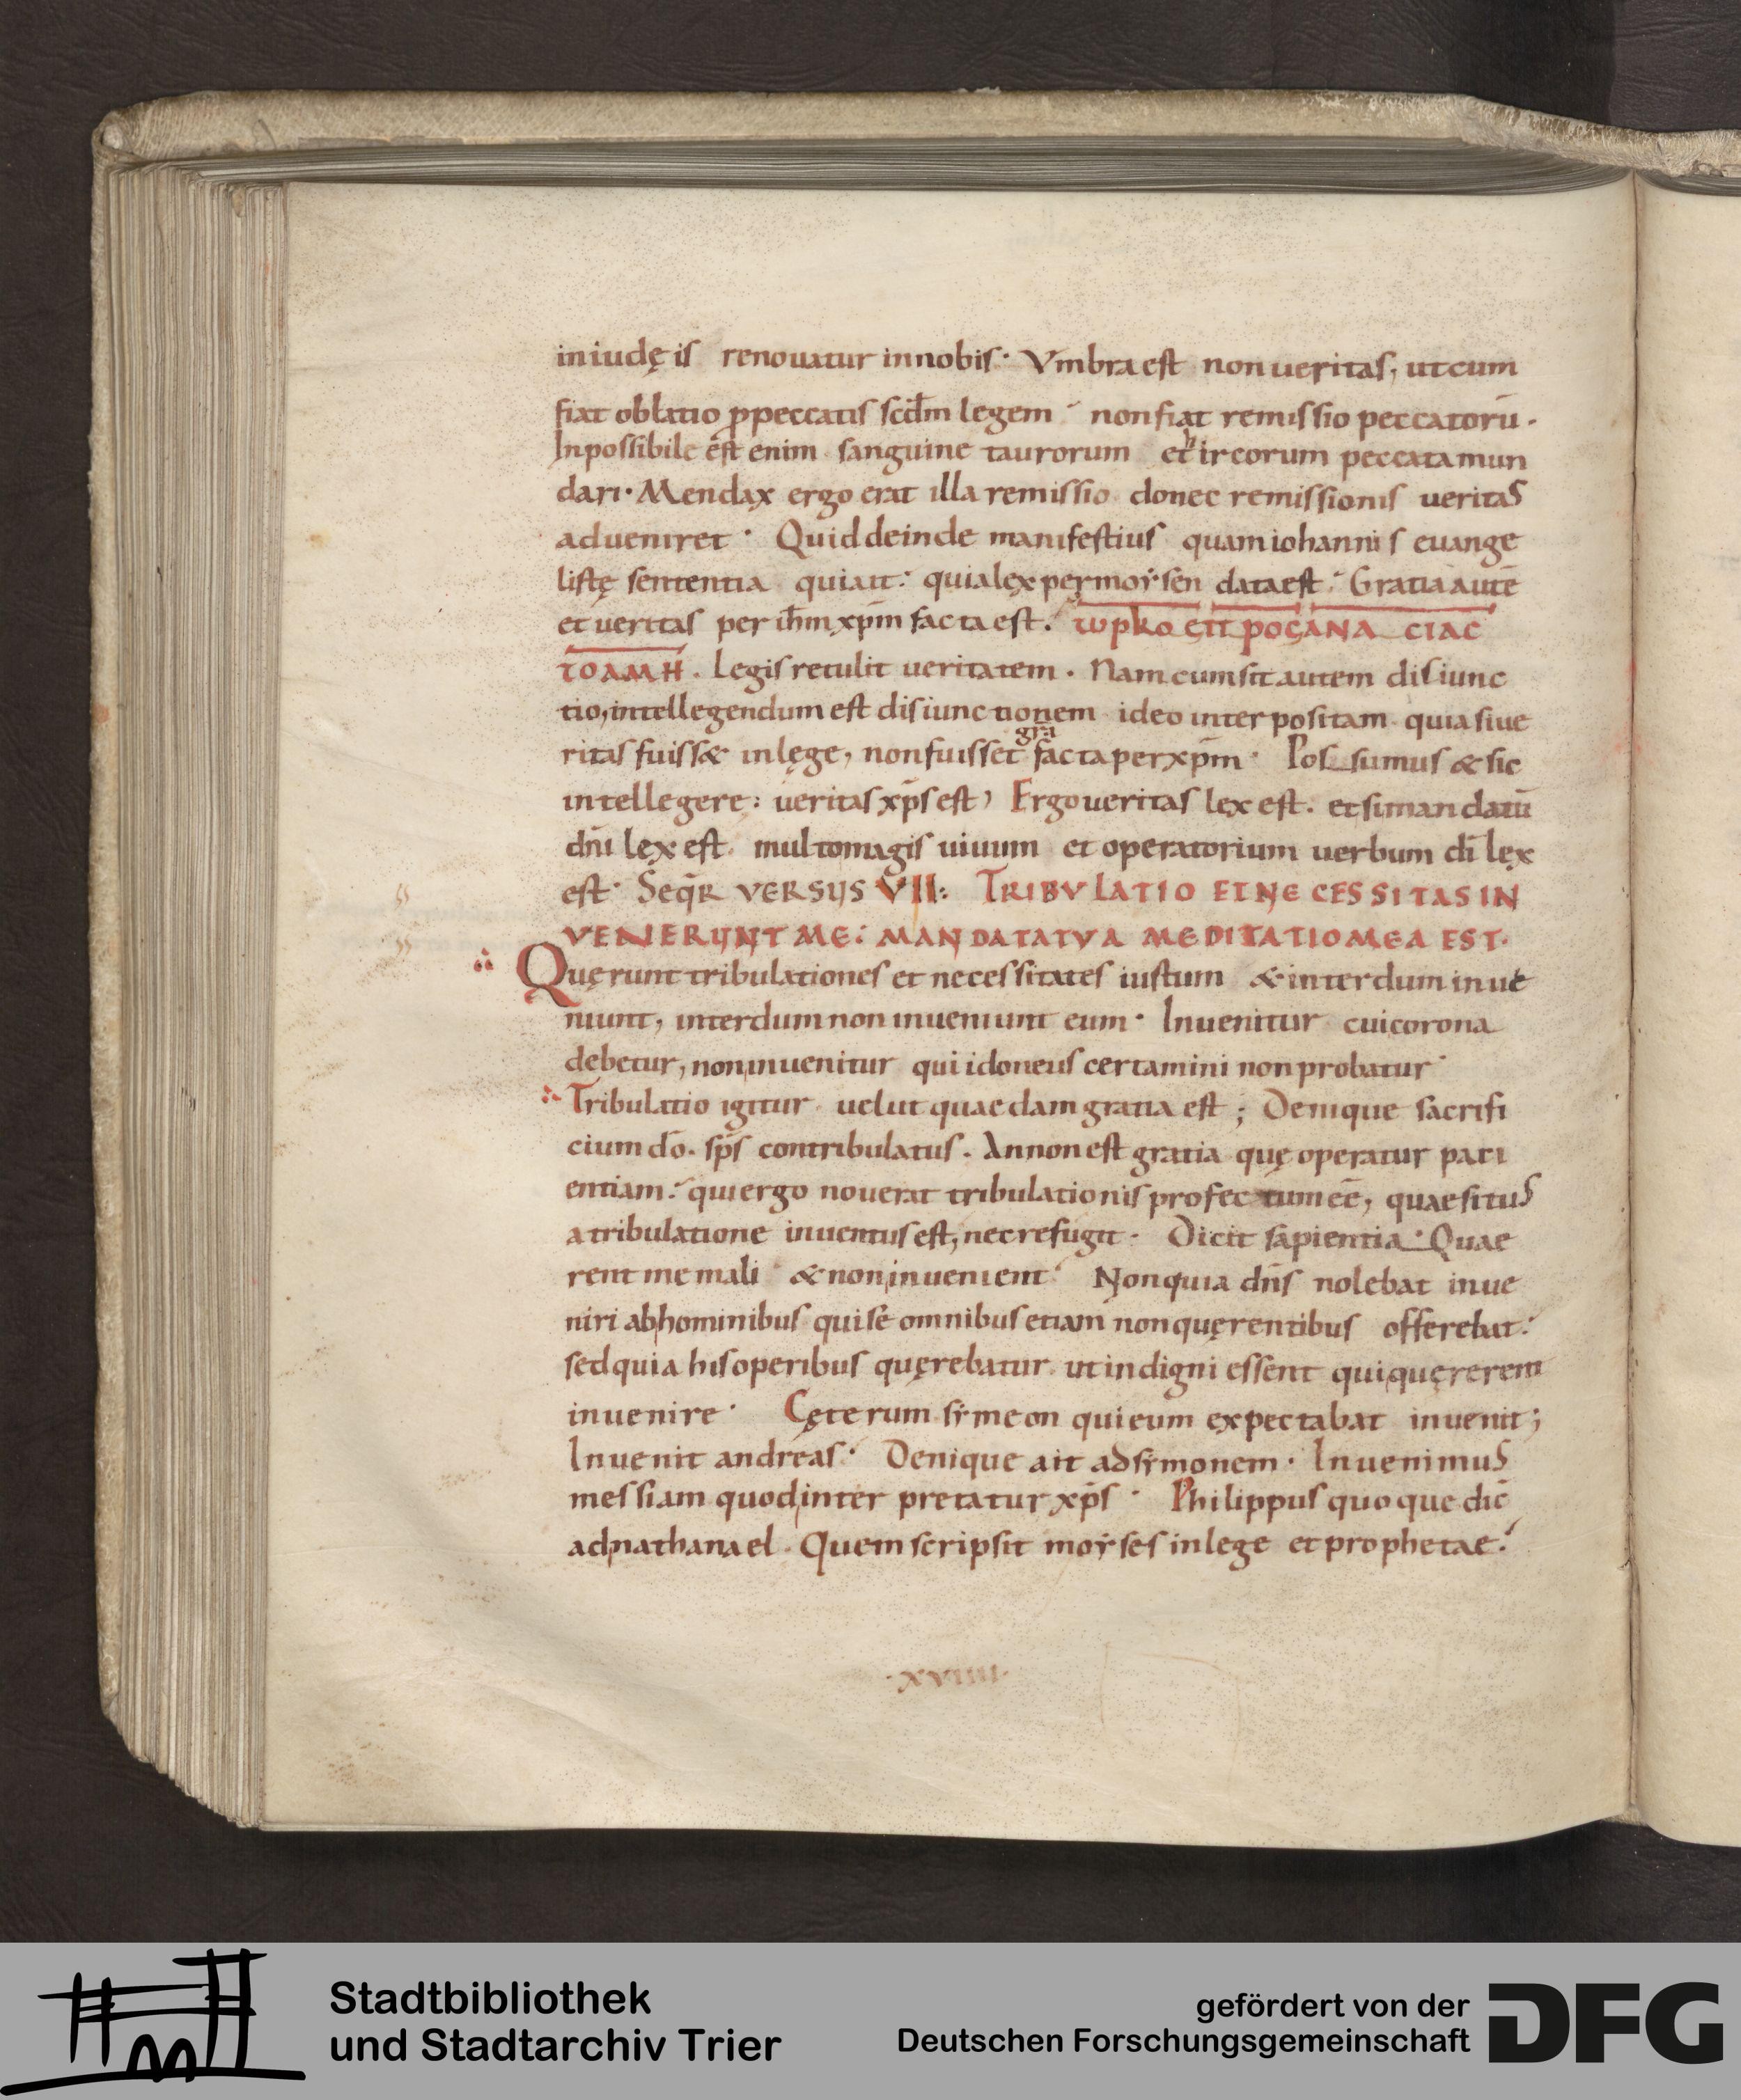 iniudęis renouatur innobis· Vmbra est non ueritas, ut cum
fiat oblatio ꝓpeccatis scd̄m legem· non fiat remissio peccatorū·
Inpossibile est enim sanguine taurorum et hircorum peccata mun
dari· Mendax ergo erat illa remissio donec remissionis ueritas
adueniret· Quid deinde manifestius quam iohannis euange
listę sententia qui ait: quia lex per moysen data est· Gratia autē
et ueritas per ihm̄ xp̄m facta est.
τοαμη. Legis retulit ueritatem. Nam cum sit autem disiunc
tio, intellegendum est disiunctionem ideo interpositam quia si ue
gra
ritas fuiss& in lege, non fuisset facta per xp̄m· Possumus & sic
intellegere: ueritas xp̄s est, Ergo ueritas lex est. et si mandatū
dn̄i lex est. multo magis uiuum et operatorium uerbum dī lex
est· Seqr̄ VERSUS VII: TRIBVLATIO ET NECESSITAS IN
VENERUNT ME: MANDATA TVA MEDITATIO MEA EST·
Quęrunt tribulationes et necessitates iustum & interdum inue
niunt, interdum non inueniunt eum· Inuenitur cui corona
debetur, non inuenitur qui idoneus certamini non probatur·
Tribulatio igitur uelut quaedam gratia est; Denique sacrifi
cium dō. sp̄s contribulatus. An non est gratia quę operatur pati
entiam: qui ergo nouerat tribulationis profectum eē, quaesitus
a tribulatione inuentus est, nec refugit· Dicit sapientia· Quae
rent me mali & non inuenient· Non quia dn̄s nolebat inue
niri ab hominibus qui se omnibus etiam non quęrentibus offerebat:
sed quia his operibus quęrebatur ut indigni essent qui quęrerent
inuenire· Cęterum symeon qui eum expectabat inuenit;
Inuenit andreas· Denique ait ad symonem· Inuenimus
messiam quod interpretatur xp̄s· Philippus quoque dic̄
ad nathanael· Quem scripsit moyses in lege et prophetae:
·XVIIII·
Stadtbibliothek
und Stadtarchiv Trier
gefördert von der
Deutschen Forschungsgemeinschaft
DFG